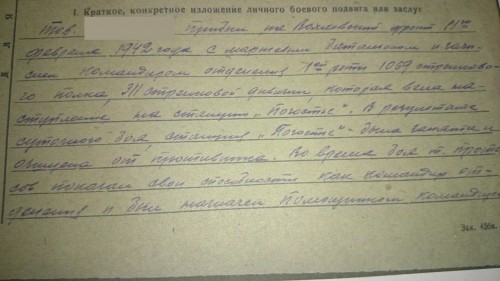 I. Краткое, конкретное изложение личного боевого подвига или заслуг
Тов. Прибыл на Волховский фронт 1го
февраля 1942 года с маршевым батальоном и
командиром отделения 1ой роты 1069 стрелково-
го полка, 311 стрелковой дивизии которая вела на-
ступление на станцию „Погостье". В результате
суточного боя, станция „Погостье" - была занята и
очищена от противника. Во время боя т.
сов показал свои способности как командир от-
деления и был назначен помощником командира
Зак. 456н.